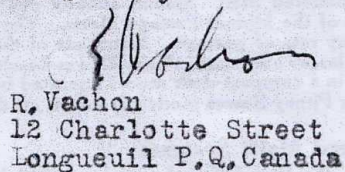 R. Vachon
R. Vachon
12 Charlotte Street
Longueuil P.Q. Canada